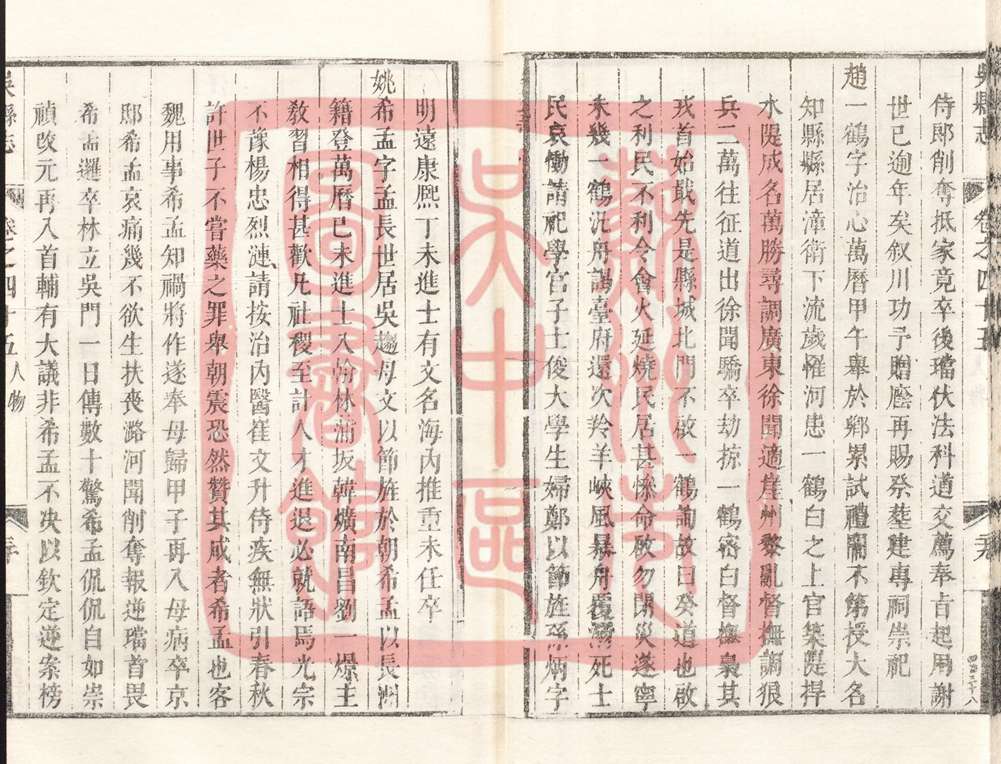 吳縣志 卷之四十五
侍郎削奪抵家竟卒後璫伏法科道交薦奉旨起用謝
世已逾年矣叙川功予贈廕再賜祭塟建專祠崇祀
趙一鶴字治心萬曆甲午舉於鄉累試禮闈不第授大名
知縣縣居漳衛下流歲罹河患一鶴白之上官築隄捍
水隄成名萬勝尋調廣東徐聞適崖州黎亂督撫調狼
兵二萬往征道出徐聞驕卒劫掠一鶴密白督撫梟其
戎首始戢先是縣城北門不啟一鶴詢故曰癸道也啟
之利民不利令會火延燒民居甚慘命啟勿閉災遂寧
未幾一鶴汎舟謁臺府還次羚羊峽風暴舟覆溺死士
民哀慟請祀學官子士俊大學生婦鄭以節旌孫炳字
明遠康熙丁未進士有文名海內推重未任卒
姚希孟字孟長世居吳趨母文以節旌於朝希孟以長洲
籍登萬曆己未進士入翰林蒲坂韓爌南昌劉一燝主
敎習相得甚歡凡社稷至計人才進退必就語焉光宗
不豫楊忠烈漣請按治內醫崔文升侍疾無狀引春秋
許世子不嘗藥之罪舉朝震恐然贊其成者希孟也客
魏用事希孟知禍將作遂奉母歸甲子再入母病卒京
邸希孟哀痛幾不欲生扶喪潞河聞削奪報逆璫首畏
希孟邏卒林立吳門一日傳數十驚希孟侃侃自如崇
禎改元再入首輔有大議非希孟不决以欽定逆案榜
吳縣志 卷之四十五 人物
蘇州市
吳中區
圖書館